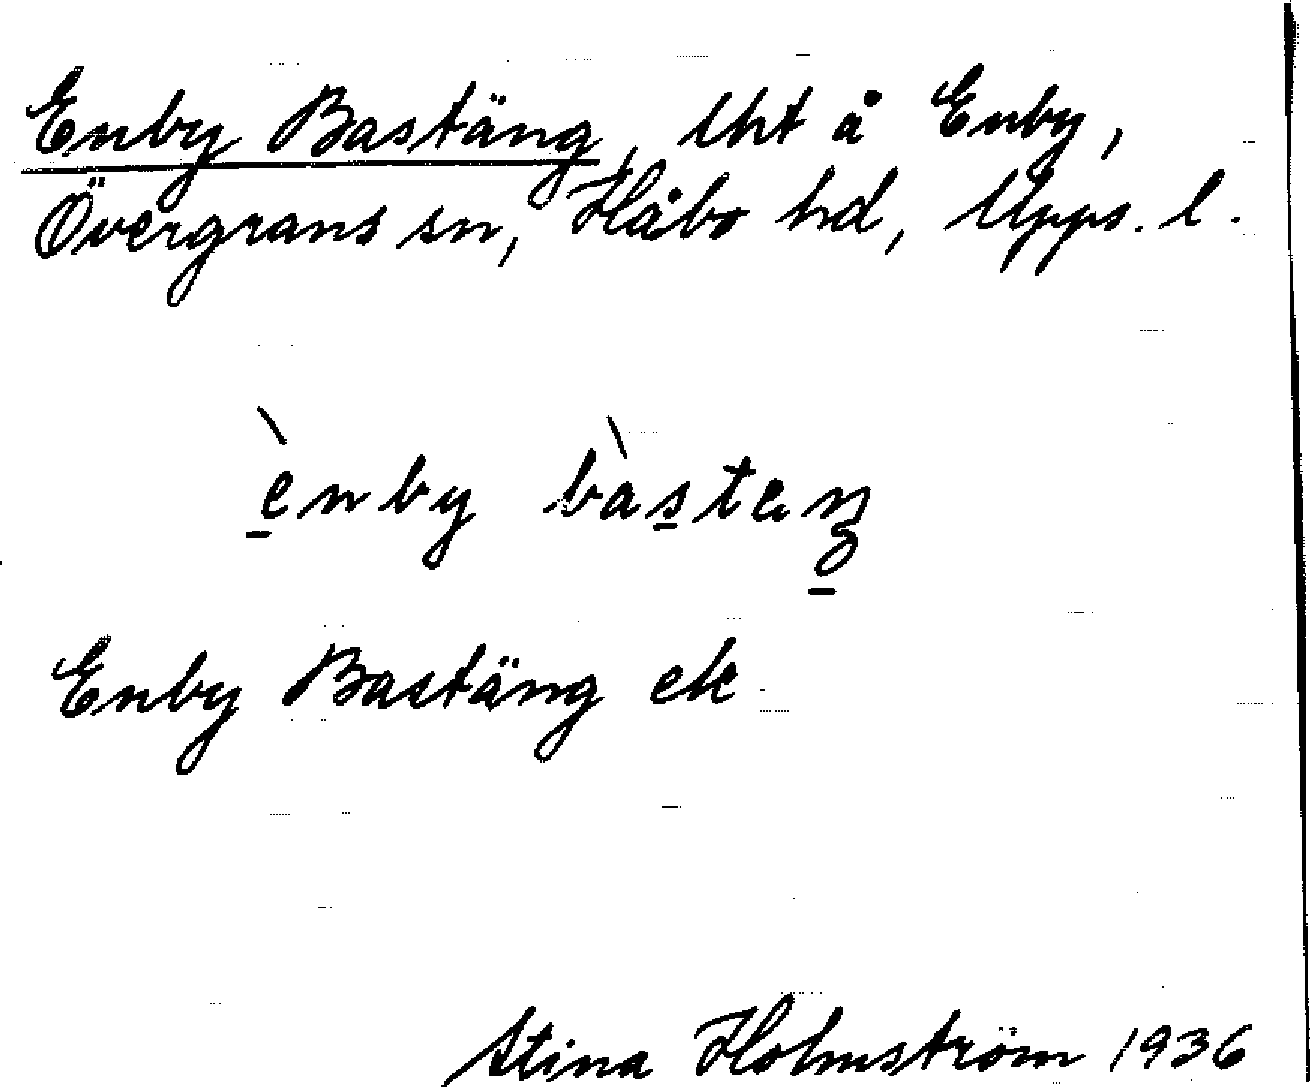 Enby Bastäng, lht å Enby,
Övergrans sn, Håbo hd, Upps. l.
ènby bàstäŋ
Enby Bastäng ek
Stina Holmström 1936